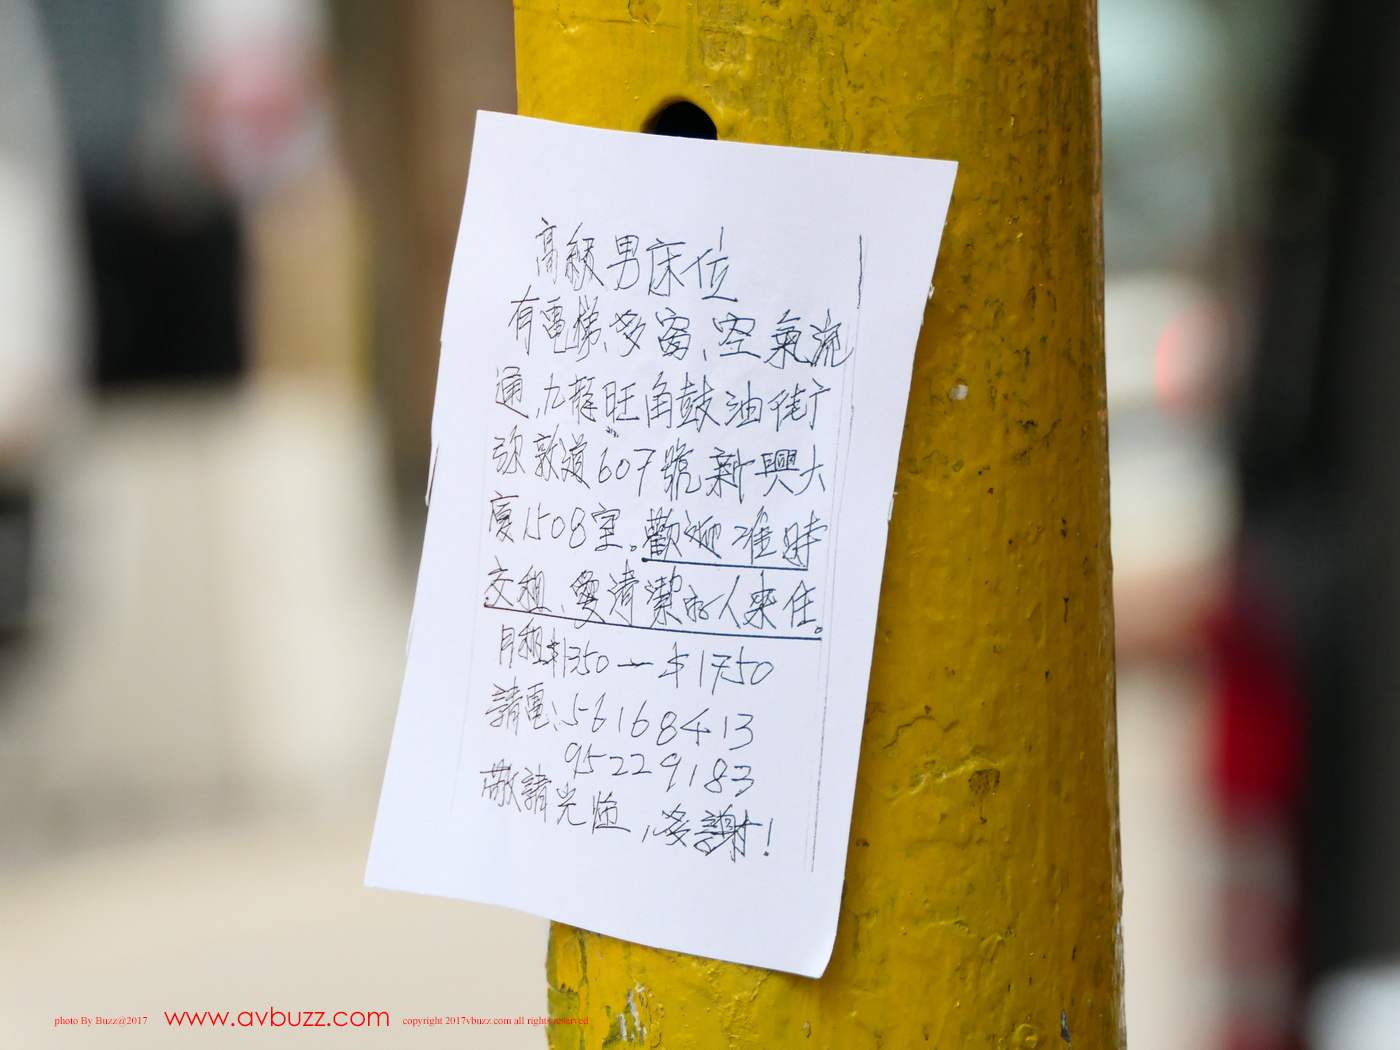 高級男床位
有電梯、多窗、空氣流
通,九龍旺角豉油街
弥敦道607號新興大
廈1508室。歡迎准時
交租、愛清潔的人來住。
月租$1350—$1750
請電:56168413
95229183
敬請光臨,多謝!
photo By Buzz@2017 www.avbuzz.com copyright 2017vbuzz.com all rights reserved